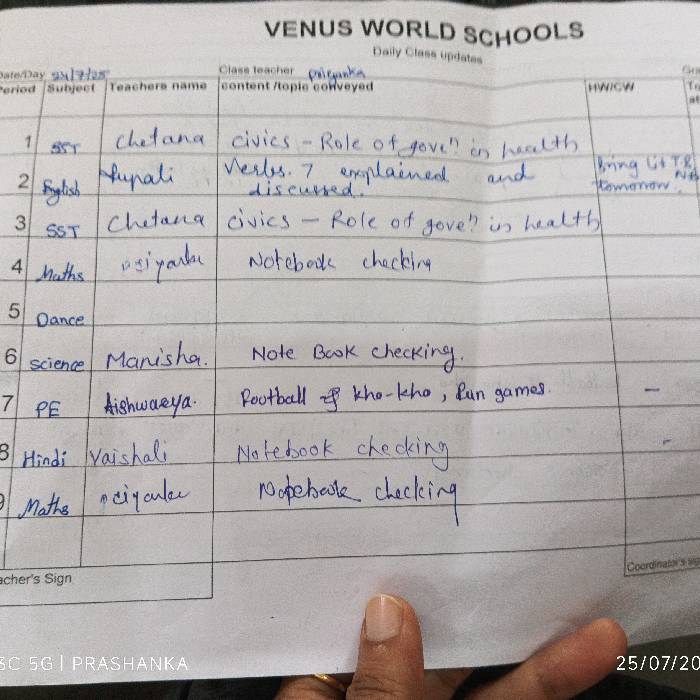 VENUS WORLD SCHOOLS
Daily Class updates
Date/Day 24/7/25 Class teacher priyanka
Period Subject Teachers name content /topic conveyed HW/CW
1 SST Chetana civics - Role of gove'n in health
2 English Rupali Verbs. 7 explained and discussed. Bring Lit TB NB tomorrow.
3 SST Chetana civics - Role of gove'n in health
4 Maths priyanka Notebook checking
5 Dance
6 Science Manisha. Note Book checking.
7 PE Aishwarya. Football & kho-kho, fun games. -
8 Hindi Vaishali Notebook checking -
9 Maths priyanka Notebook checking
Teacher's Sign
Coordinator's
5G | PRASHANKA
25/07/20